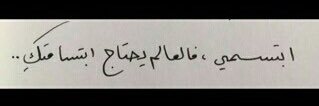 ابتسمي ، فالعالم يحتاج ابتسامتكِ ..